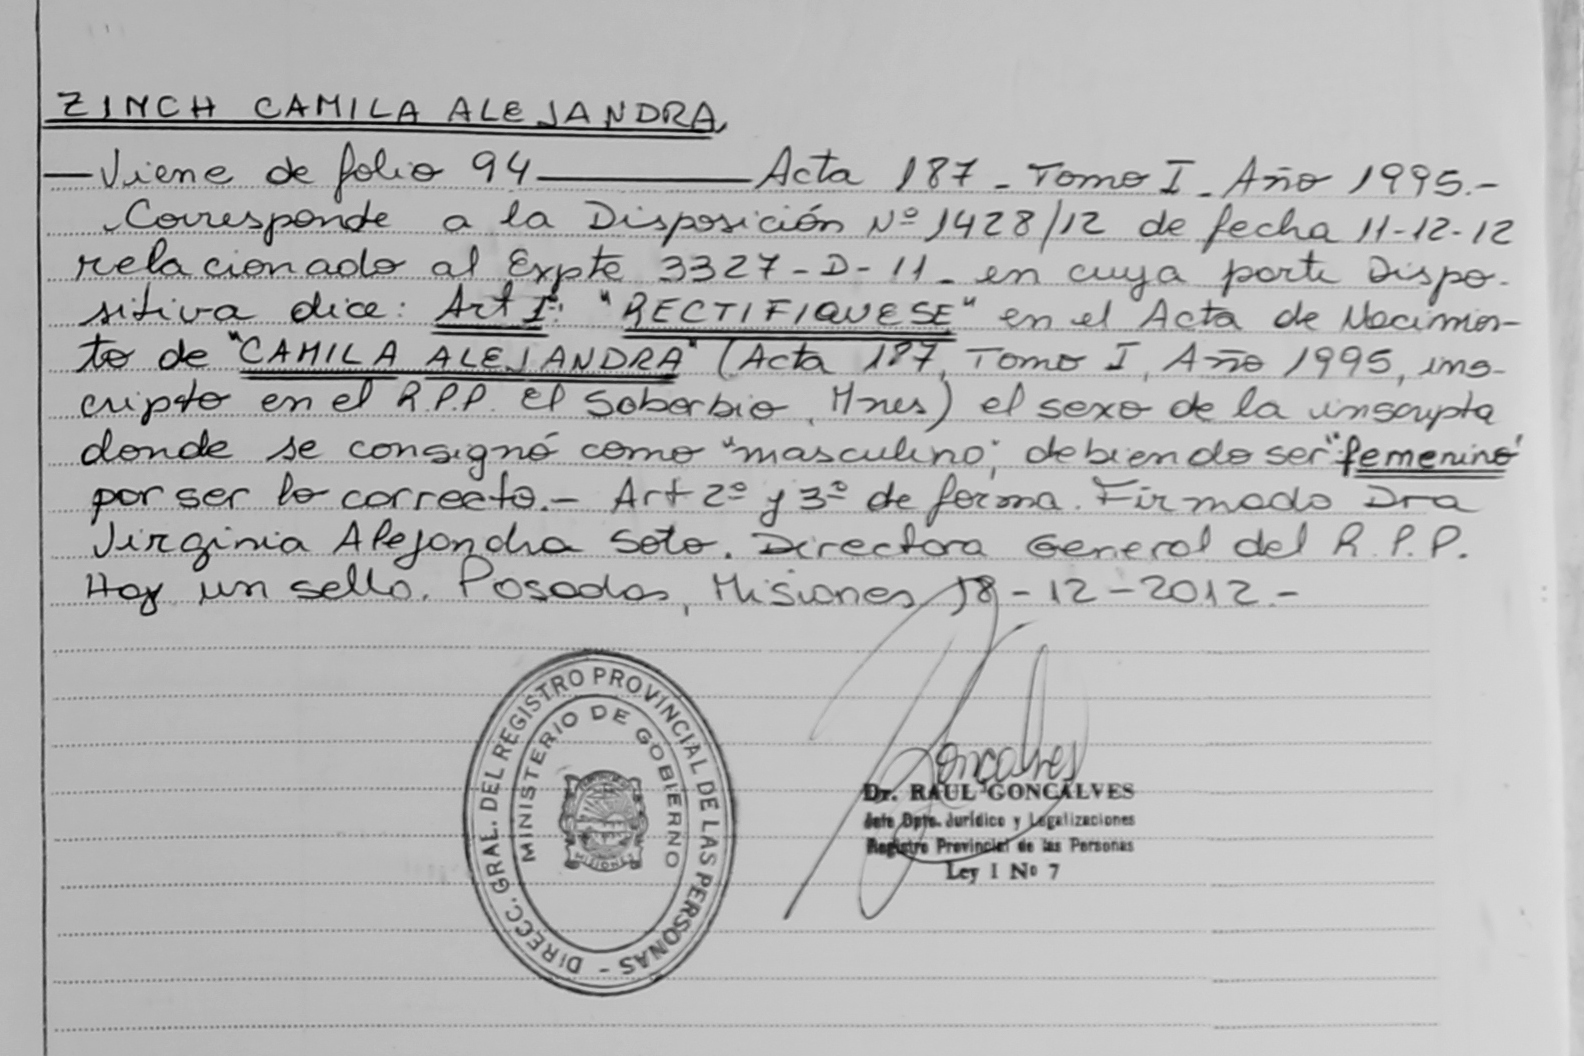 ZINCH CAMILA ALEJANDRA,
— Viene de folio 94 ——— Acta 187 - Tomo I - Año 1995.-
Corresponde a la Disposición Nº 1428/12 de fecha 11-12-12
relacionado al Expte 3327-D-11 - en cuya parte Dispo-
sitiva dice: Art I: "RECTIFIQUESE" en el Acta de Nacimien-
to de "CAMILA ALEJANDRA" (Acta 187, Tomo I, Año 1995, ins-
cripto en el R.P.P. El Soberbio, Mnes) el sexo de la inscripta
donde se consignó como "masculino", debiendo ser "femenino"
por ser lo correcto.- Art 2º y 3º de forma. Firmado Dra
Virginia Alejandra Soto. Directora General del R.P.P.
Hay un sello. Posadas, Misiones 18-12-2012.-
DIRECC. GRAL. DEL REGISTRO PROVINCIAL DE LAS PERSONAS -
MINISTERIO DE GOBIERNO
MISIONES
Goncalves
Dr. RAUL GONCALVES
Jefe Dpto. Jurídico y Legalizaciones
Registro Provincial de las Personas
Ley I Nº 7